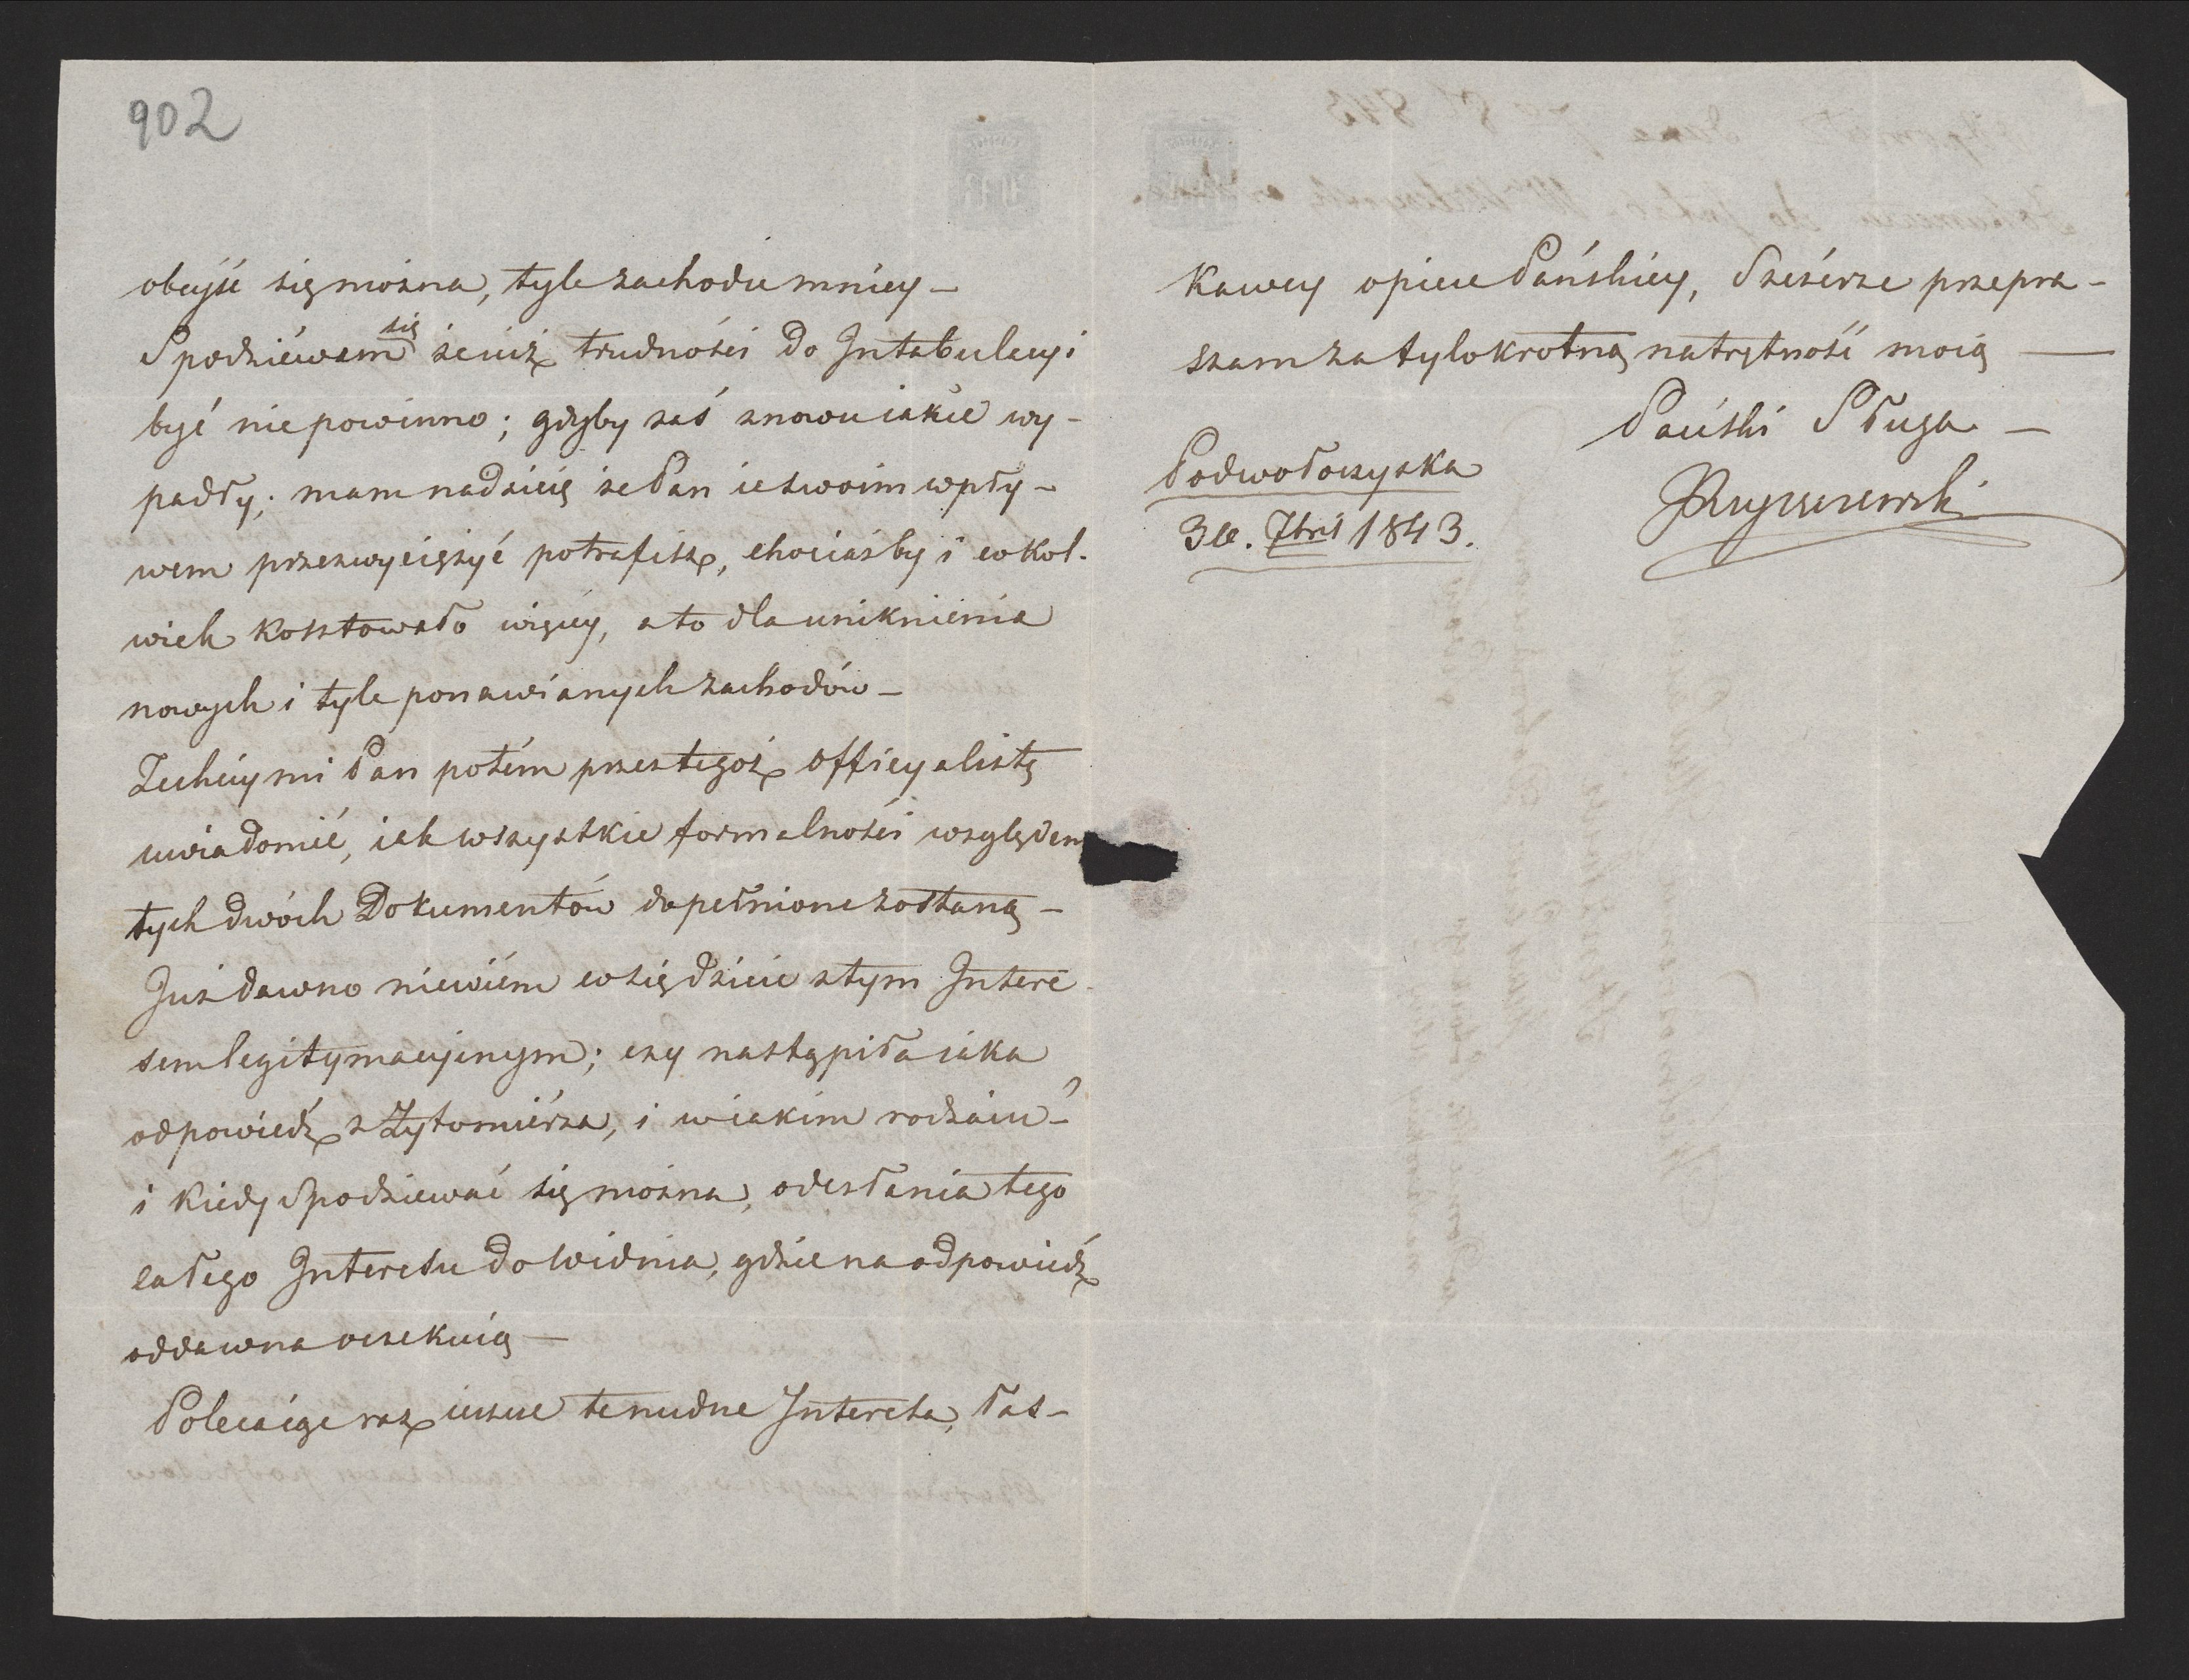 902
obeyść się można, tyle zachodu mniey –
Spodziéwam się że iuż trudności do Intabulacyi
być nie powinno; gdyby zaś znowu iakie wy-
padły; mam nadzieię że Pan ie swoim wpły-
wem przezwyciężyć potrafisz, chociażby i cokol-
wiek kosztowało więcey, a to dla uniknienia
nowych i tyle ponawianych zachodów –
Zechcey mi Pan potém przez tegoż officyalistę
uwiadomić, iak wszystkie formalności względem
tych dwóch Dokumentów dopełnione zostaną –
Już dawno niewiém co się dzieie z tym Intere-
sem legitymacyjnym; czy nastąpiła iaka
odpowiedź z Żytomiérza, i w iakim rodzaiu –
i kiedy spodziewać się można, odesłania tego
całego Interesu do Widnia, gdzie na odpowiedź
oddawna oczekuią –
Polecaiąc raz ieszcze te nudne Interesa, łas-
kawey opiece Pańskiéy, Szczérze przepra-
szam za tylokrotną natrętność moię —
Pański Sługa –
Podwołoczyska
3 8bris 1843.